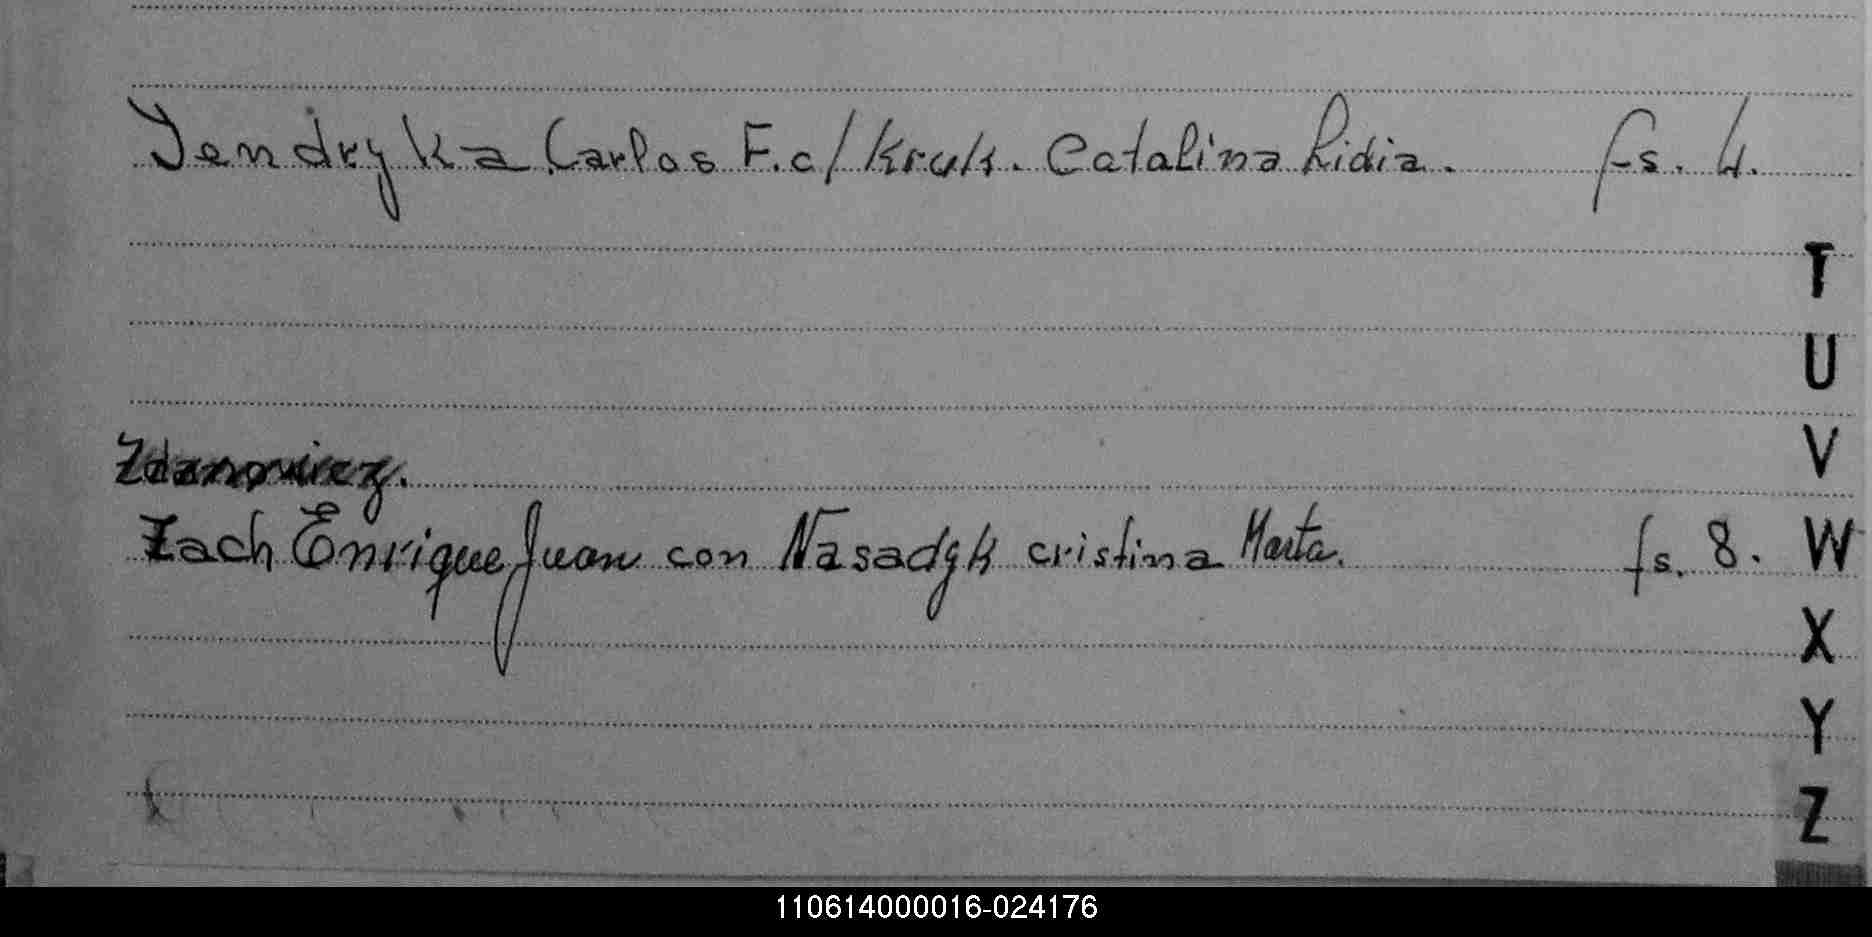 Yendryka Carlos F. c/ Kruk. Catalina Lidia. fs. 4.
T
U
V
Zdanowicz.
Zach Enrique Juan con Nasadyk cristina Marta. fs. 8.
W
X
Y
Z
110614000016-024176